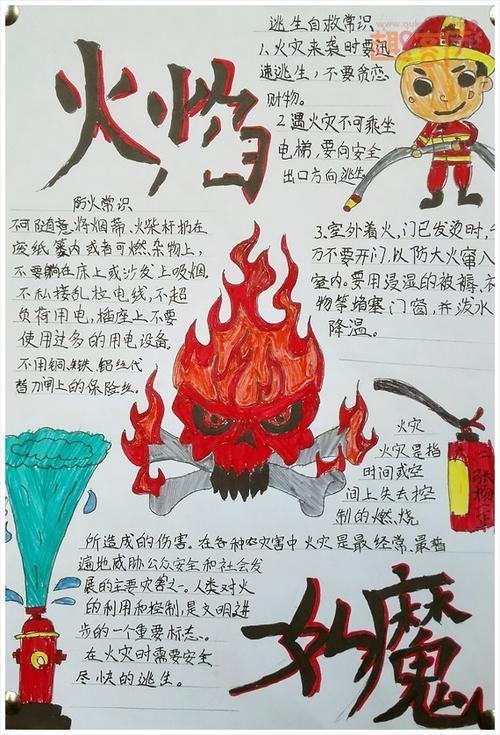 火焰
逃生自救常识
1.火灾来袭时要迅
速逃生,不要贪恋
财物。
2.遇火灾不可乘坐
电梯,要向安全
出口方向逃生
防火常识
不可随意将烟蒂、火柴杆扔在
废纸篓内或者可燃杂物上,
不要躺在床上或沙发上吸烟.
不私接乱拉电线,不超
负荷用电,插座上不要
使用过多的用电设备
不用铜、铁、铝丝代
替刀闸上的保险丝。
3.室外着火、门已发烫时,千
万不要开门,以防大火窜入
室内。要用浸湿的被褥、衣
物等堵塞门窗,并泼水
降温。
火灾
火灾是指
时间或空
间上失去控
制的燃烧
所造成的伤害。在各种灾害中火灾是最经常、最普
遍地威胁公众安全和社会发
展的主要灾害之一。人类对火
的利用和控制,是文明进
步的一个重要标志、
在火灾时需要安全
尽快的逃生。
魔